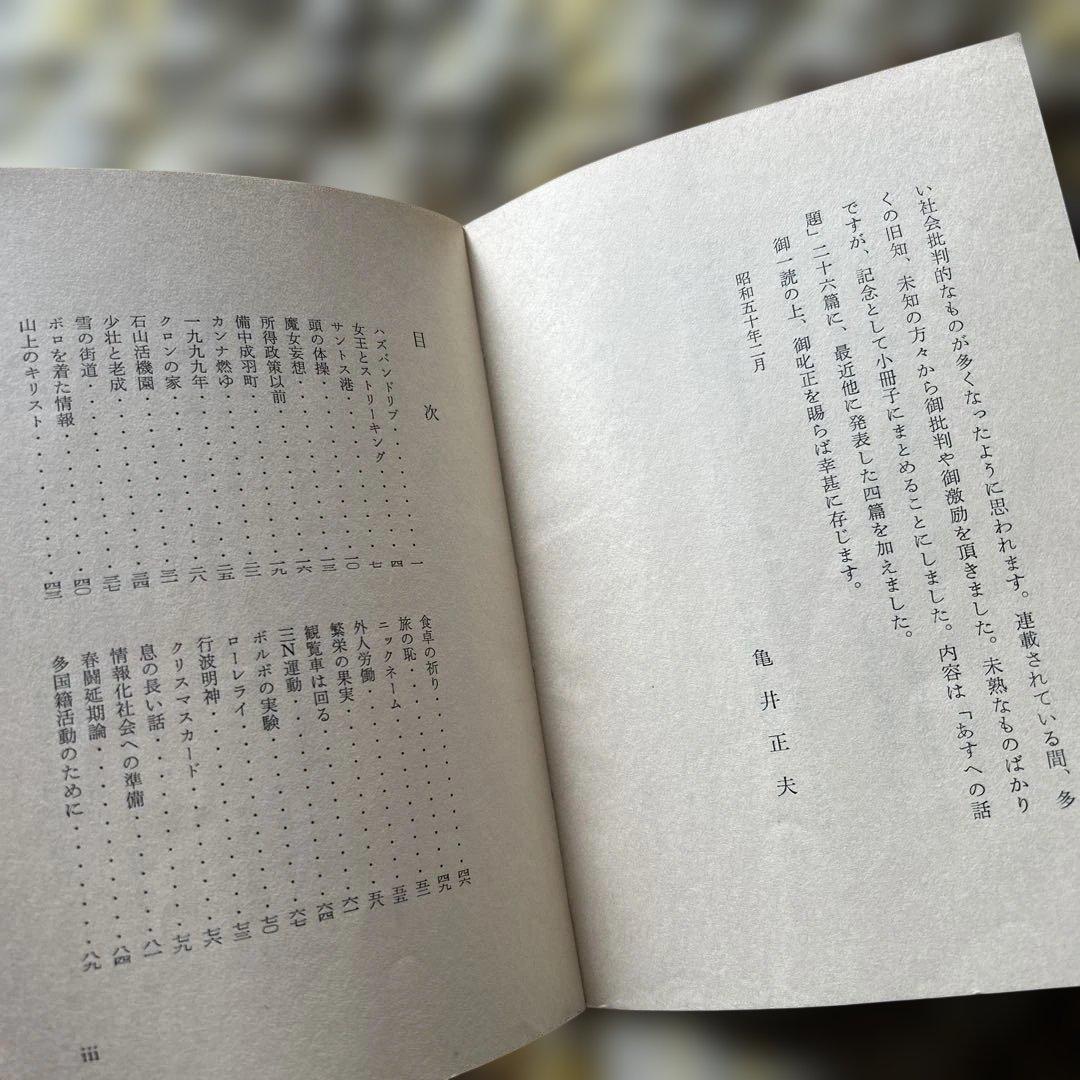 い社会批判的なものが多くなったように思われます。連載されている間、多
くの旧知、未知の方々から御批判や御激励を頂きました。未熟なものばかり
ですが、記念として小冊子にまとめることにしました。内容は「あすへの話
題」二十六篇に、最近他に発表した四篇を加えました。
御一読の上、御叱正を賜らば幸甚に存じます。
昭和五十年二月
亀井正夫
目次
ハズバンドリブ・・・・・・一
女王とストリーキング・・・・四
サントス港・・・・・・七
頭の体操・・・・・・一〇
魔女妄想・・・・・・一三
所得政策以前・・・・・・一六
備中成羽町・・・・・・一九
カンナ燃ゆ・・・・・・二二
一九九九年・・・・・・二五
クロンの家・・・・・・二八
石山活機園・・・・・・三一
少壮と老成・・・・・・三四
雪の街道・・・・・・三七
ボロを着た情報・・・・・・四〇
山上のキリスト・・・・・・四三
食卓の祈り・・・・・・四六
旅の恥・・・・・・四九
ニックネーム・・・・・・五二
外人労働・・・・・・五五
繁栄の果実・・・・・・五八
観覧車は回る・・・・・・六一
三N運動・・・・・・六四
ボルボの実験・・・・・・六七
ローレライ・・・・・・七〇
行波明神・・・・・・七三
クリスマスカード・・・・・・七六
息の長い話・・・・・・七九
情報化社会への準備・・・・・・八一
春闘延期論・・・・・・八四
多国籍活動のために・・・・・・八九
iii